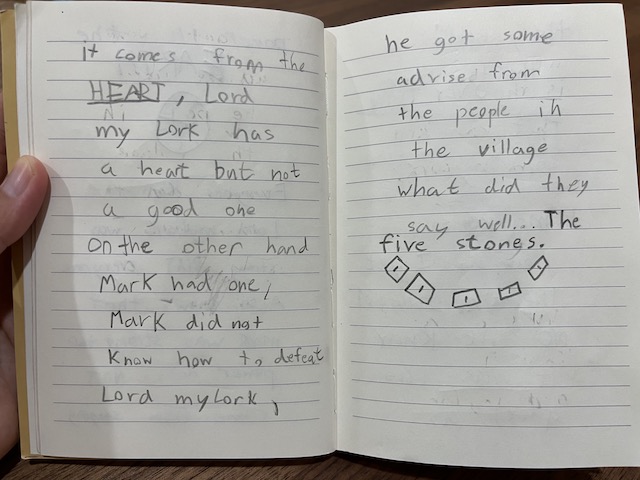 it comes from the
HEART, Lord
my Lork has
a heart but not
a good one
on the other hand
Mark had one,
Mark did not
know how to defeat
Lord my Lork,
he got some
advise from
the people in
the village
what did they
say well... The
five stones.